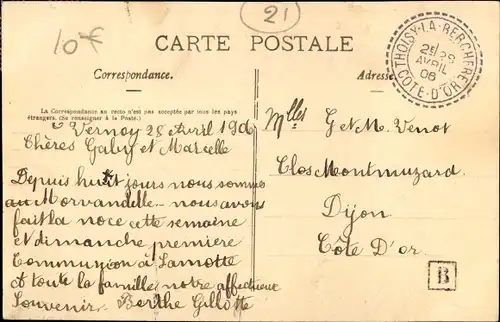 10f
21
CARTE POSTALE
Correspondance.
Adresse
THOISY-LA-BERCHÈRE
2E 29
AVRIL
06
CÔTE-D'OR
La Correspondance au recto n'est pas acceptée par tous les pays
étrangers. (Se renseigner à la Poste.)
Vernoy 28 Avril 1906
Chères Gaby et Marcelle
Depuis huit jours nous sommes
au Morvandelle nous avons
fait la noce cette semaine
et dimanche première
Communion à Lamotte
et toute la famille notre affectueux
Souvenir. Berthe Gillotte
Mlles G et M. Venot
Clos Montmuzard
Dijon
Côte D'or
B